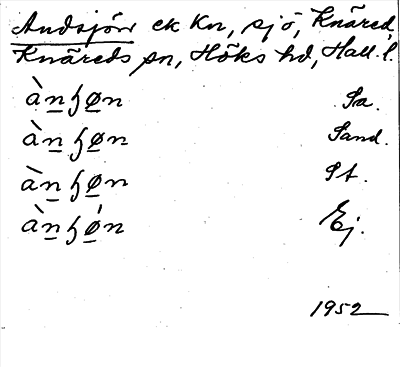 Andsjön ek Kn, sjö, Knäred,
Knäreds sn, Höks hd, Hall. l.
ànʃøn Sa.
ànʃøn Sand.
ànʃøn St.
ànʃǿn Ej.
1952